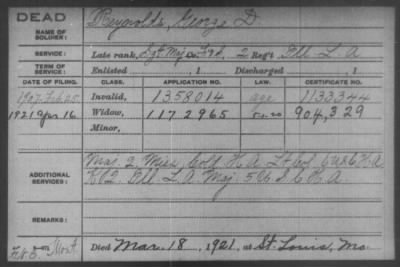 DEAD
NAME OF SOLDIER: Reynolds, George D.
SERVICE: Late rank, Sgt Maj F&S, 2 Reg't Ill. L. A.
TERM OF SERVICE: Enlisted , 1 Discharged , 1
DATE OF FILING. CLASS. APPLICATION NO. LAW. CERTIFICATE NO.
1907 Feb 25 Invalid, 1358014 age 1133344
1921 Apr 16 Widow, 1172965 904,329
Minor,
ADDITIONAL SERVICES: Maj. 2. Miss. Cold. H. A. Lt Col 6 US C. H. A.
2 Ill L. A. Maj. 5 U S C H. A
REMARKS:
Died Mar. 18, 1921, at St. Louis, Mo.